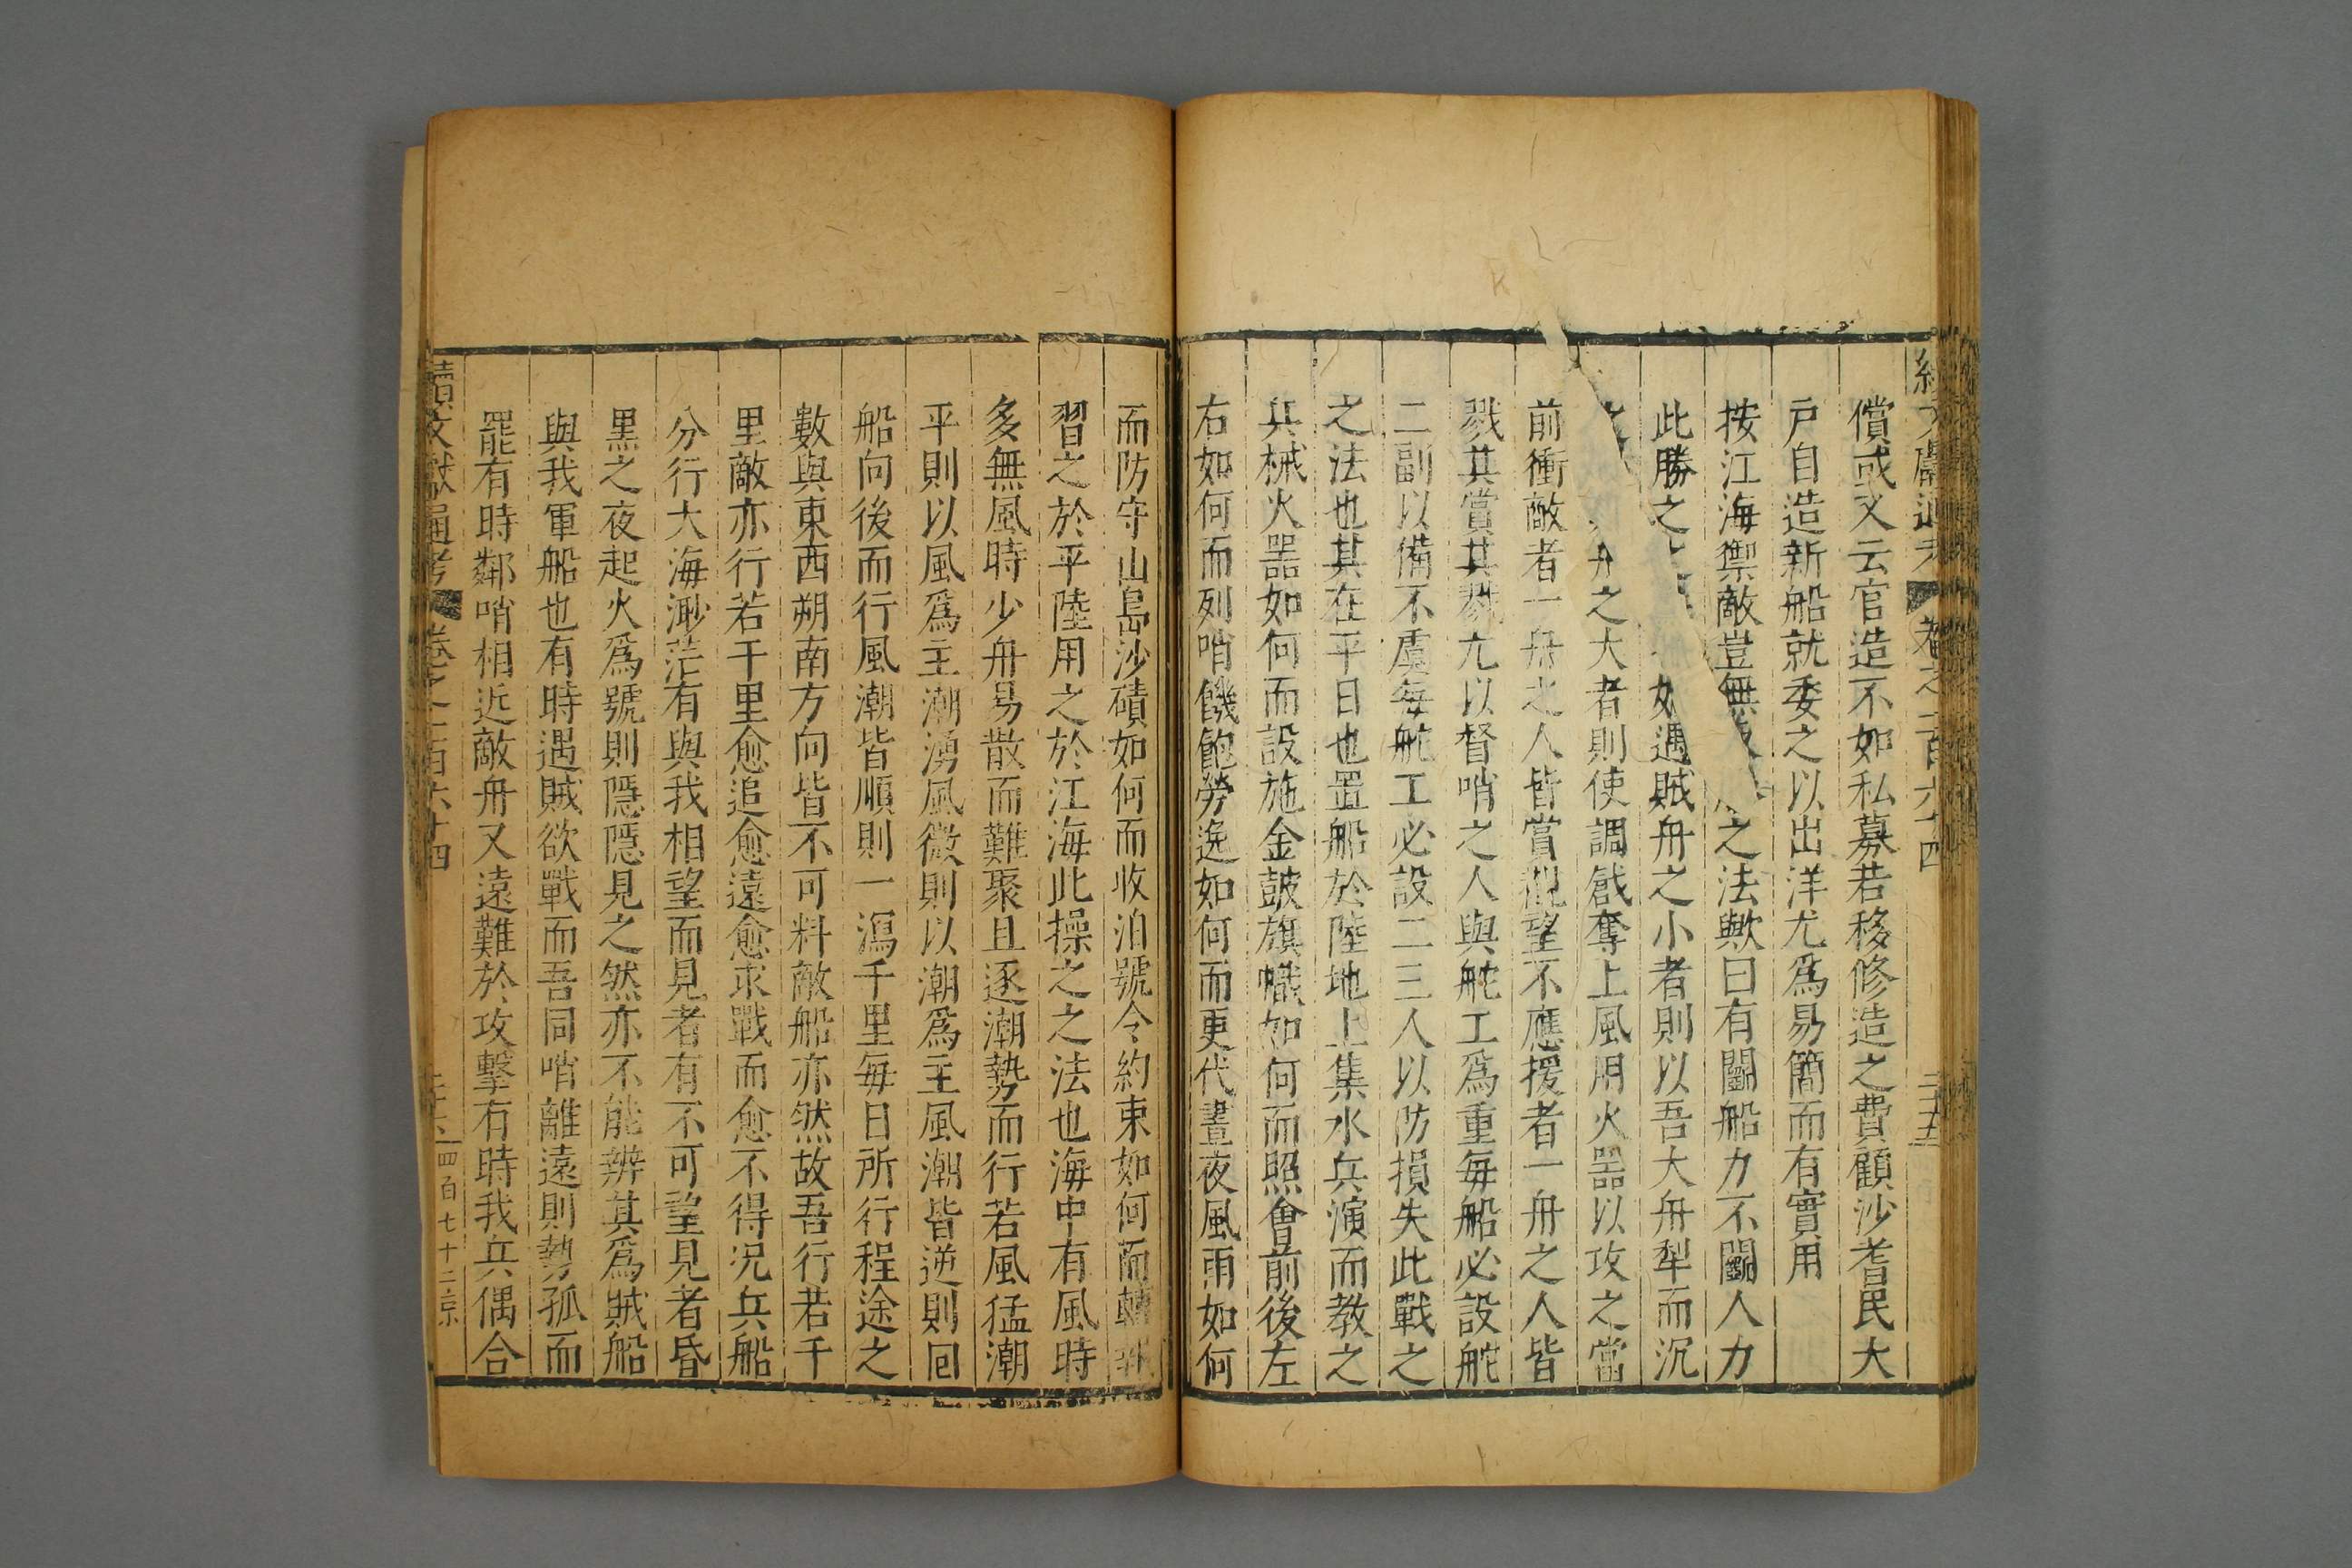 續文獻通考 卷之一百六十四 三十五
償或又云官造不如私募若移修造之費顧沙耆民大
戶自造新船就委之以出洋尤爲易簡而有實用
按江海禦敵豈無 之法歟曰有鬬船力不鬬人力
此勝之 如遇賊舟之小者則以吾大舟犁而沉
之 舟之大者則使調戧奪上風用火器以攻之當
前衝敵者一舟之人皆賞觀望不應援者一舟之人皆
戮其賞其戮尤以督哨之人與舵工爲重每船必設舵
二副以備不虞每舵工必設二三人以防損失此戰之
之法也其在平日也置船於陸地上集水兵演而教之
兵械火器如何而設施金鼓旗幟如何而照會前後左
右如何而列哨饑飽勞逸如何而更代晝夜風雨如何
而防守山島沙磧如何而收泊號令約束如何而轉報
習之於平陸用之於江海此操之之法也海中有風時
多無風時少舟易散而難聚且逐潮勢而行若風猛潮
平則以風爲主潮湧風微則以潮爲主風潮皆逆則囘
船向後而行風潮皆順則一瀉千里每日所行程途之
數與東西朔南方向皆不可料敵船亦然故吾行若千
里敵亦行若千里愈追愈遠愈求戰而愈不得况兵船
分行大海渺茫有與我相望而見者有不可望見者昏
黑之夜起火爲號則隱隱見之然亦不能辨其爲賊船
與我軍船也有時遇賊欲戰而吾同哨離遠則勢孤而
罷有時鄰哨相近敵舟又遠難於攻擊有時我兵偶合
續文獻通考 卷之一百六十四 四百七十二京